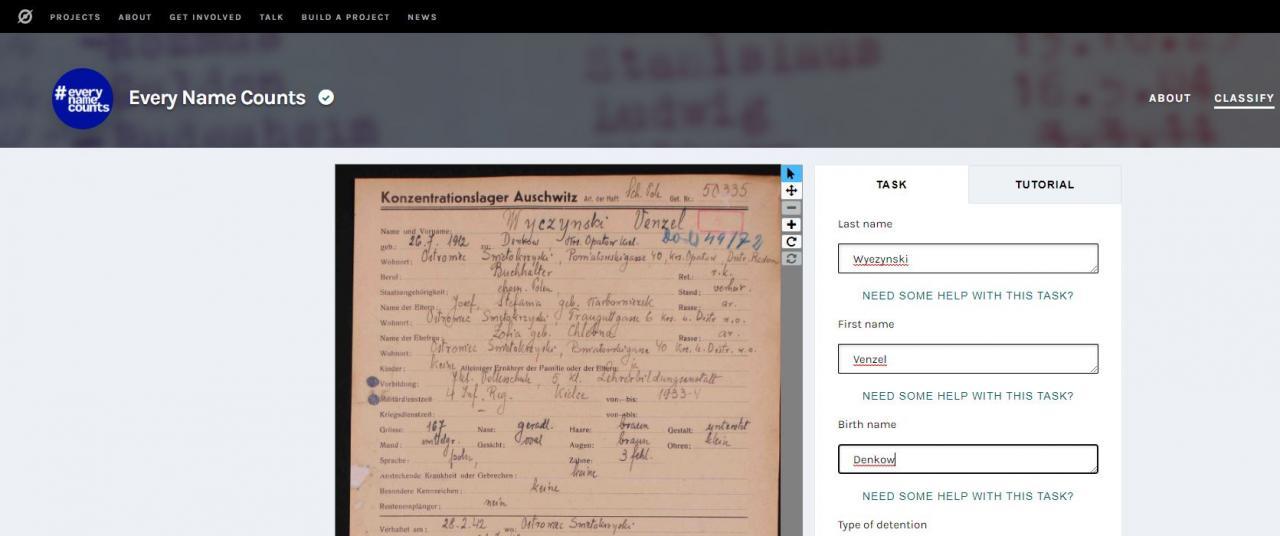 PROJECTS ABOUT GET INVOLVED TALK BUILD A PROJECT NEWS
#every name counts
Every Name Counts
ABOUT CLASSIFY
Konzentrationslager Auschwitz Art. der Haft: Sch. Pole Gef. Nr.: 50335
Name und Vorname: Wyczynski Venzel
geb.: 26.7. 1912 zu: Denkow Krs. Opatow
Wohnort: Ostrowiec
Beruf: Buchhalter Rel.: r.k.
Staatsangehörigkeit: ehem. Polen Stand: verheir.
Name der Eltern: Josef, Stefania geb. Rasse: ar.
Wohnort: Ostrowiec
Name der Ehefrau: Zofia geb. Chlebna Rasse: ar.
Wohnort: Ostrowiec
Kinder: keine Alleiniger Ernährer der Familie oder der Eltern: ja
Vorbildung: Volksschule, 5 kl. Lehrerbildungsanstalt
Militärdienstzeit: 4 Inf. Reg. Kielce von—bis: 1933-
Kriegsdienstzeit: – von—bis:
Grösse: 167 Nase: geradl. Haare: braun Gestalt: untersetzt
Mund: Gesicht: oval Augen: braun Ohren: klein
Sprache: poln. Zähne: 3 fehl.
Ansteckende Krankheit oder Gebrechen: keine
Besondere Kennzeichen: keine
Rentenempfänger: nein
Verhaftet am: 28.2.42 wo: Ostrowiec
TASK TUTORIAL
Last name
Wyezynski
NEED SOME HELP WITH THIS TASK?
First name
Venzel
NEED SOME HELP WITH THIS TASK?
Birth name
Denkow
NEED SOME HELP WITH THIS TASK?
Type of detention